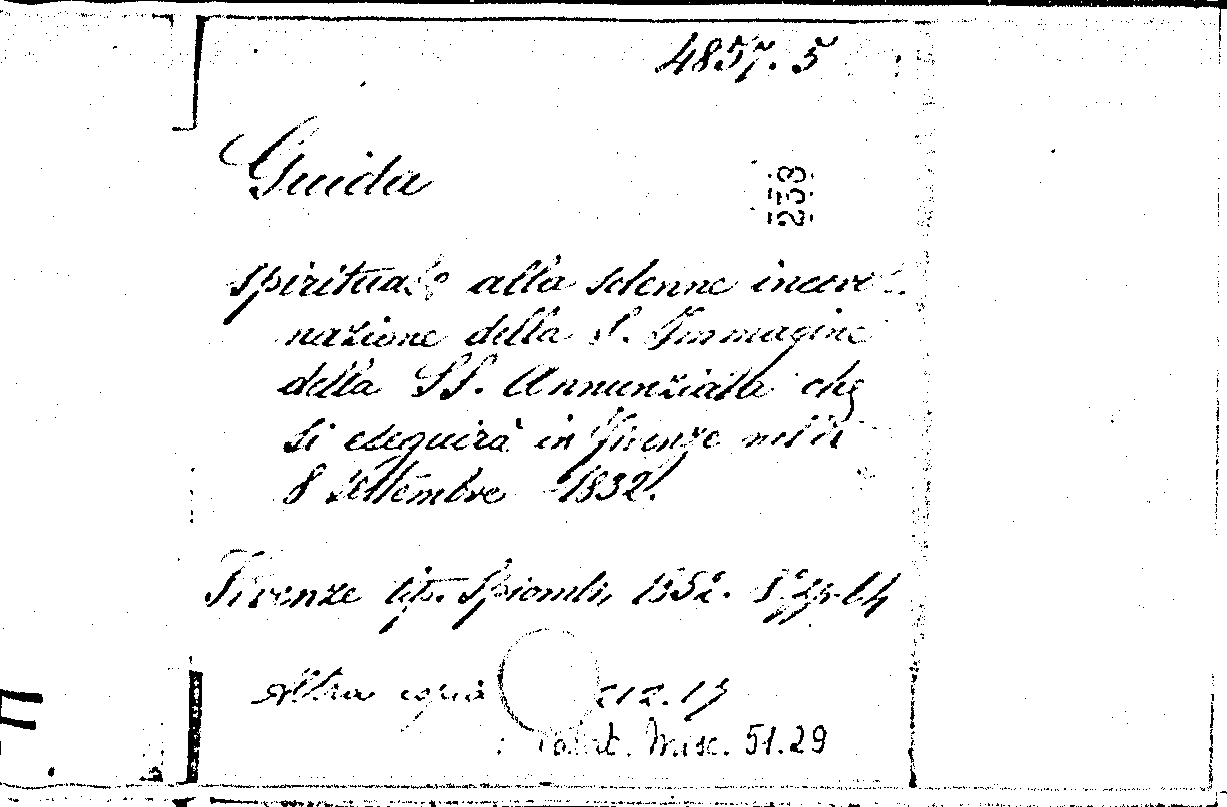 4857.5
Guida
233
spirituale alla solenne incoro-
nazione della S. Immagine
della SS. Annunziata che
si eseguirà in Firenze nel dì
8 settembre 1832.
Firenze tip. Spiombi, 1852. 8° pp. 64
Altra copia 212.15
Palat. Misc. 51.29